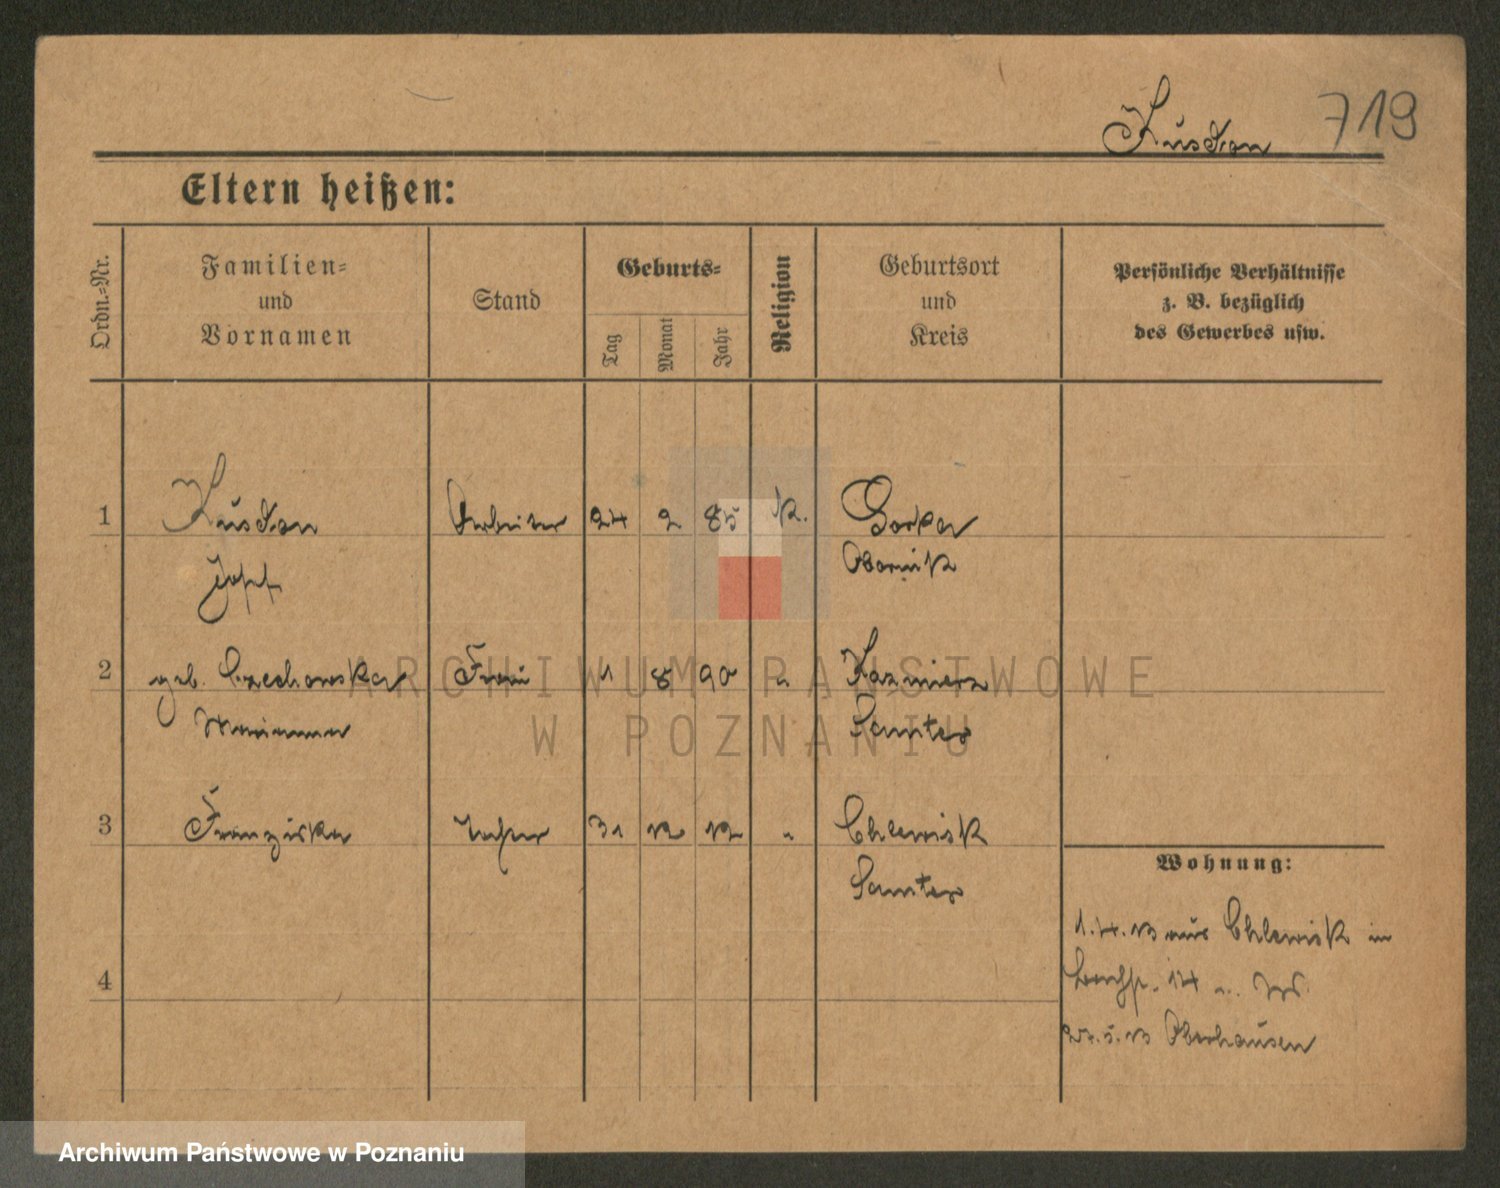 Kuston 719
Eltern heißen:
Ordn.-Nr.
Familien-
und
Vornamen
Stand
Geburts-
Tag
Monat
Jahr
Religion
Geburtsort
und
Kreis
Persönliche Verhältnisse
z. B. bezüglich
des Gewerbes usw.
1 Kuston Arbeiter 24 2 85 K. Gorka
Josef Obornik
2 geb. Czechowska Frau 1 8 90 " Kazmierz
Marianna Samter
3 Franziska Tochter 31 12 12 " Chlewisk
Samter
Wohnung:
1.4.13 aus Chlewisk in
14
4
5.13 Oberhausen
ARCHIWUM PAŃSTWOWE
W POZNANIU
Archiwum Państwowe w Poznaniu